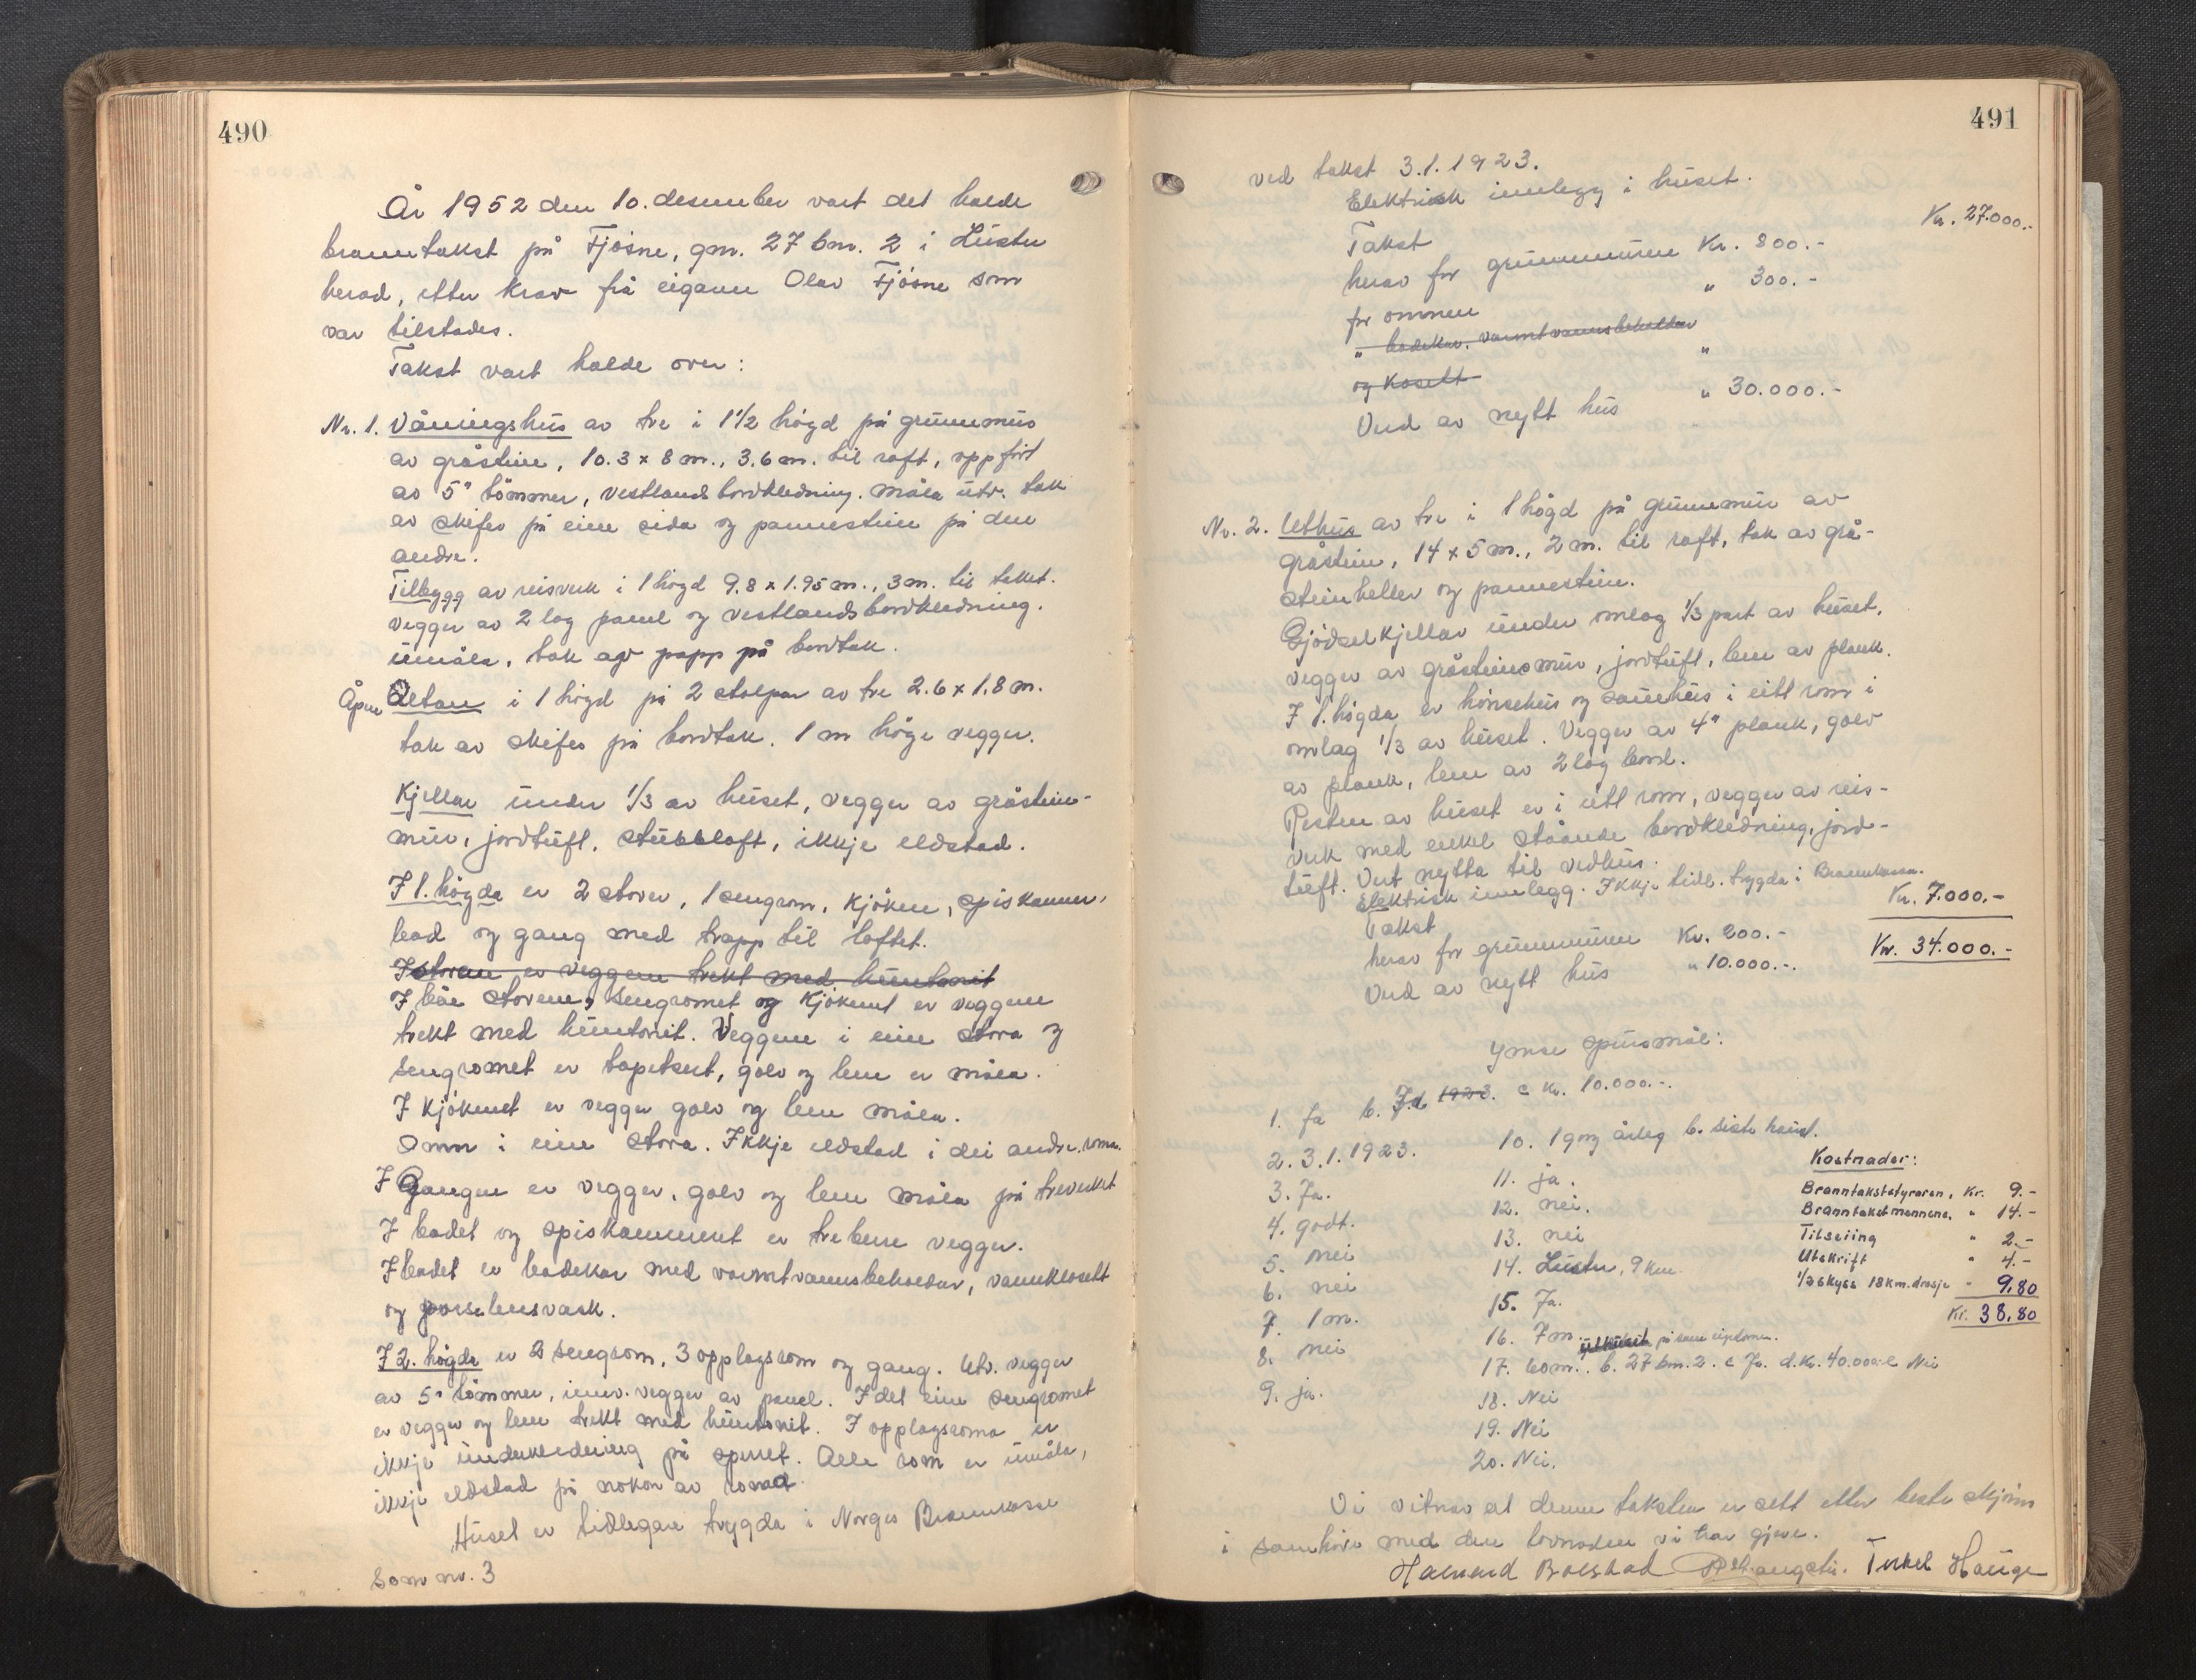 490
År 1952 den 10. desember vart det halde
branntakst på Fjøsne, gnr. 27 bnr. 2 i Luster
herad, etter krav frå eigaren Olav Fjøsne som
var tilstades.
Takst vart halde over:
Nr. 1. Våningshus av tre i 1 1/2 høgd på grunnmur
av gråstein, 10.3 x 8 m., 3.6 m. til raft, oppført
av 5" tømmer, vestlandsbordkledning. måla utv. tak
av skifer på eine sida og pannestein på den
andre.
Tilbygg av reisverk i 1 høgd 9.8 x 1.95 m., 3 m. til taket.
vegger av 2 lag panel og vestlandsbordkledning.
umåla, tak av papp på bordtak.
Åpen Altan i 1 høgd på 2 stolpar av tre 2.6 x 1.8 m.
tak av skifer på bordtak. 1 m høge vegger.
Kjellar under 1/3 av huset, vegger av gråstein-
mur, jordtuft, stubbloft, ikkje eldstad.
I 1. høgda er 2 stover, 1 sengrom, kjøken, spiskammer,
bad og gang med trapp til loftet.
I stovene er veggene trekt med huntonit
I båe stovene, sengromet og kjøkenet er veggene
trekt med huntonit. Veggene i eine stova og
sengromet er tapetsert, golv og lem er måla.
I kjøkenet er vegger golv og lem måla.
Omn i eine stova. Ikkje eldstad i dei andre roma.
I Gangen er vegger, golv og lem måla på treverket
I badet og spiskammeret er treberre vegger.
I badet er badekar med varmtvannsbehaldar, vannklosett
og porselensvask.
I 2. høgda er 2 sengrom, 3 opplagsrom og gang. Utv. vegger
av 5" tømmer, innv. vegger av panel. I det eine sengromet
er vegger og lem trekt med huntonit. I opplagsroma er
ikkje underkledning på sperret. Alle rom er umåla,
ikkje eldstad på nokon av roma.
Huset er tidlegare trygda i Norges Brannkasse
som nr. 3
491
ved takst 3.1.1923.
Elektrisk innlegg i huset.
Takst Kr. 27.000.-
herav for grunnmuren Kr. 800.-
for omnen " 300.-
" badekar, varmtvannsbehaldar
og kosett "
Verd av nytt hus " 30.000.-
Nr. 2. Uthus av tre i 1 høgd på grunnmur av
gråstein, 14 x 5 m., 2 m. til raft, tak av grå-
steinheller og pannestein.
Gjødselkjellar under omlag 1/3 part av huset,
vegger av gråsteinsmur, jordtuft, lem av plank.
I 1. høgda er hønsehus og sauehus i eitt rom i
omlag 1/3 av huset. Vegger av 4" plank, golv
av plank, lem av 2 lag bord.
Resten av huset er i eitt rom, vegger av reis-
verk med enkel ståande bordkledning, jord-
tuft. Vert nytta til vedhus.
Elektrisk innlegg. Ikkje tidl. trygda i Brannkassa.
Takst Kr. 7.000.-
herav for grunnmuren Kr. 200.- Kr. 34.000.-
Verd av nytt hus " 10.000.-.
Ymse spursmål:
1. Ja b. Ja 1923. c Kr. 10.000.-.
2. 3.1.1923.
3. Ja.
4. godt.
5. nei
6. nei
7. 1 m.
8. nei
9. ja.
10. 1 gong årleg b. siste haust.
11. ja.
12. nei.
13. nei
14. Luster, 9 km.
15. Ja.
16. 7 m. på same eigedomen.
17. 60 m. b. 27 bnr. 2. c Ja. d. Kr. 40.000 e Nei
18. Nei
19. Nei
20. Nei.
Kostnader:
Branntakststyraren, Kr. 9.-
Branntakstmennene, " 14.-
Tilseiing " 2.-
Utskrift " 4.-
1/2 skyss 18 km. drosje " 9,80
Kr. 38,80
Vi vitnar at denne taksten er sett etter beste skjønn
i samhøve med den lovnaden vi har gjeve.
Halvard Bolstad Terkel Hauge